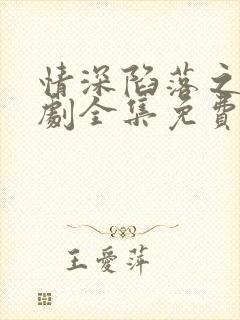 情深陷落之
劇全集免費
王愛萍